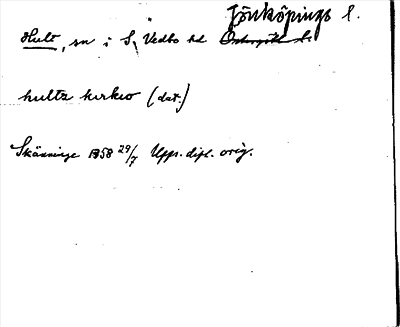 Jönköpings l.
Hult, sn i S. Vedbo hd Östergötl. l.
hulta kirkio (dat.)
Skänninge 1358 29/7 Upps. dipl. orig.